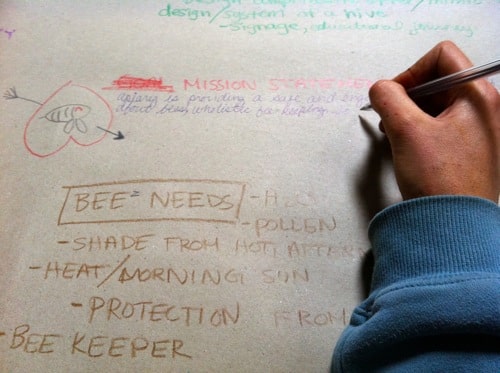 design/system at a hive
- Signage, educational journey
MISSION STATEMENT
is providing a safe and
about bees, wholistic beekeeping
BEE NEEDS
- H2O
- POLLEN
- SHADE FROM HOT AFTERN
- HEAT/MORNING SUN
- PROTECTION FROM
- BEE KEEPER